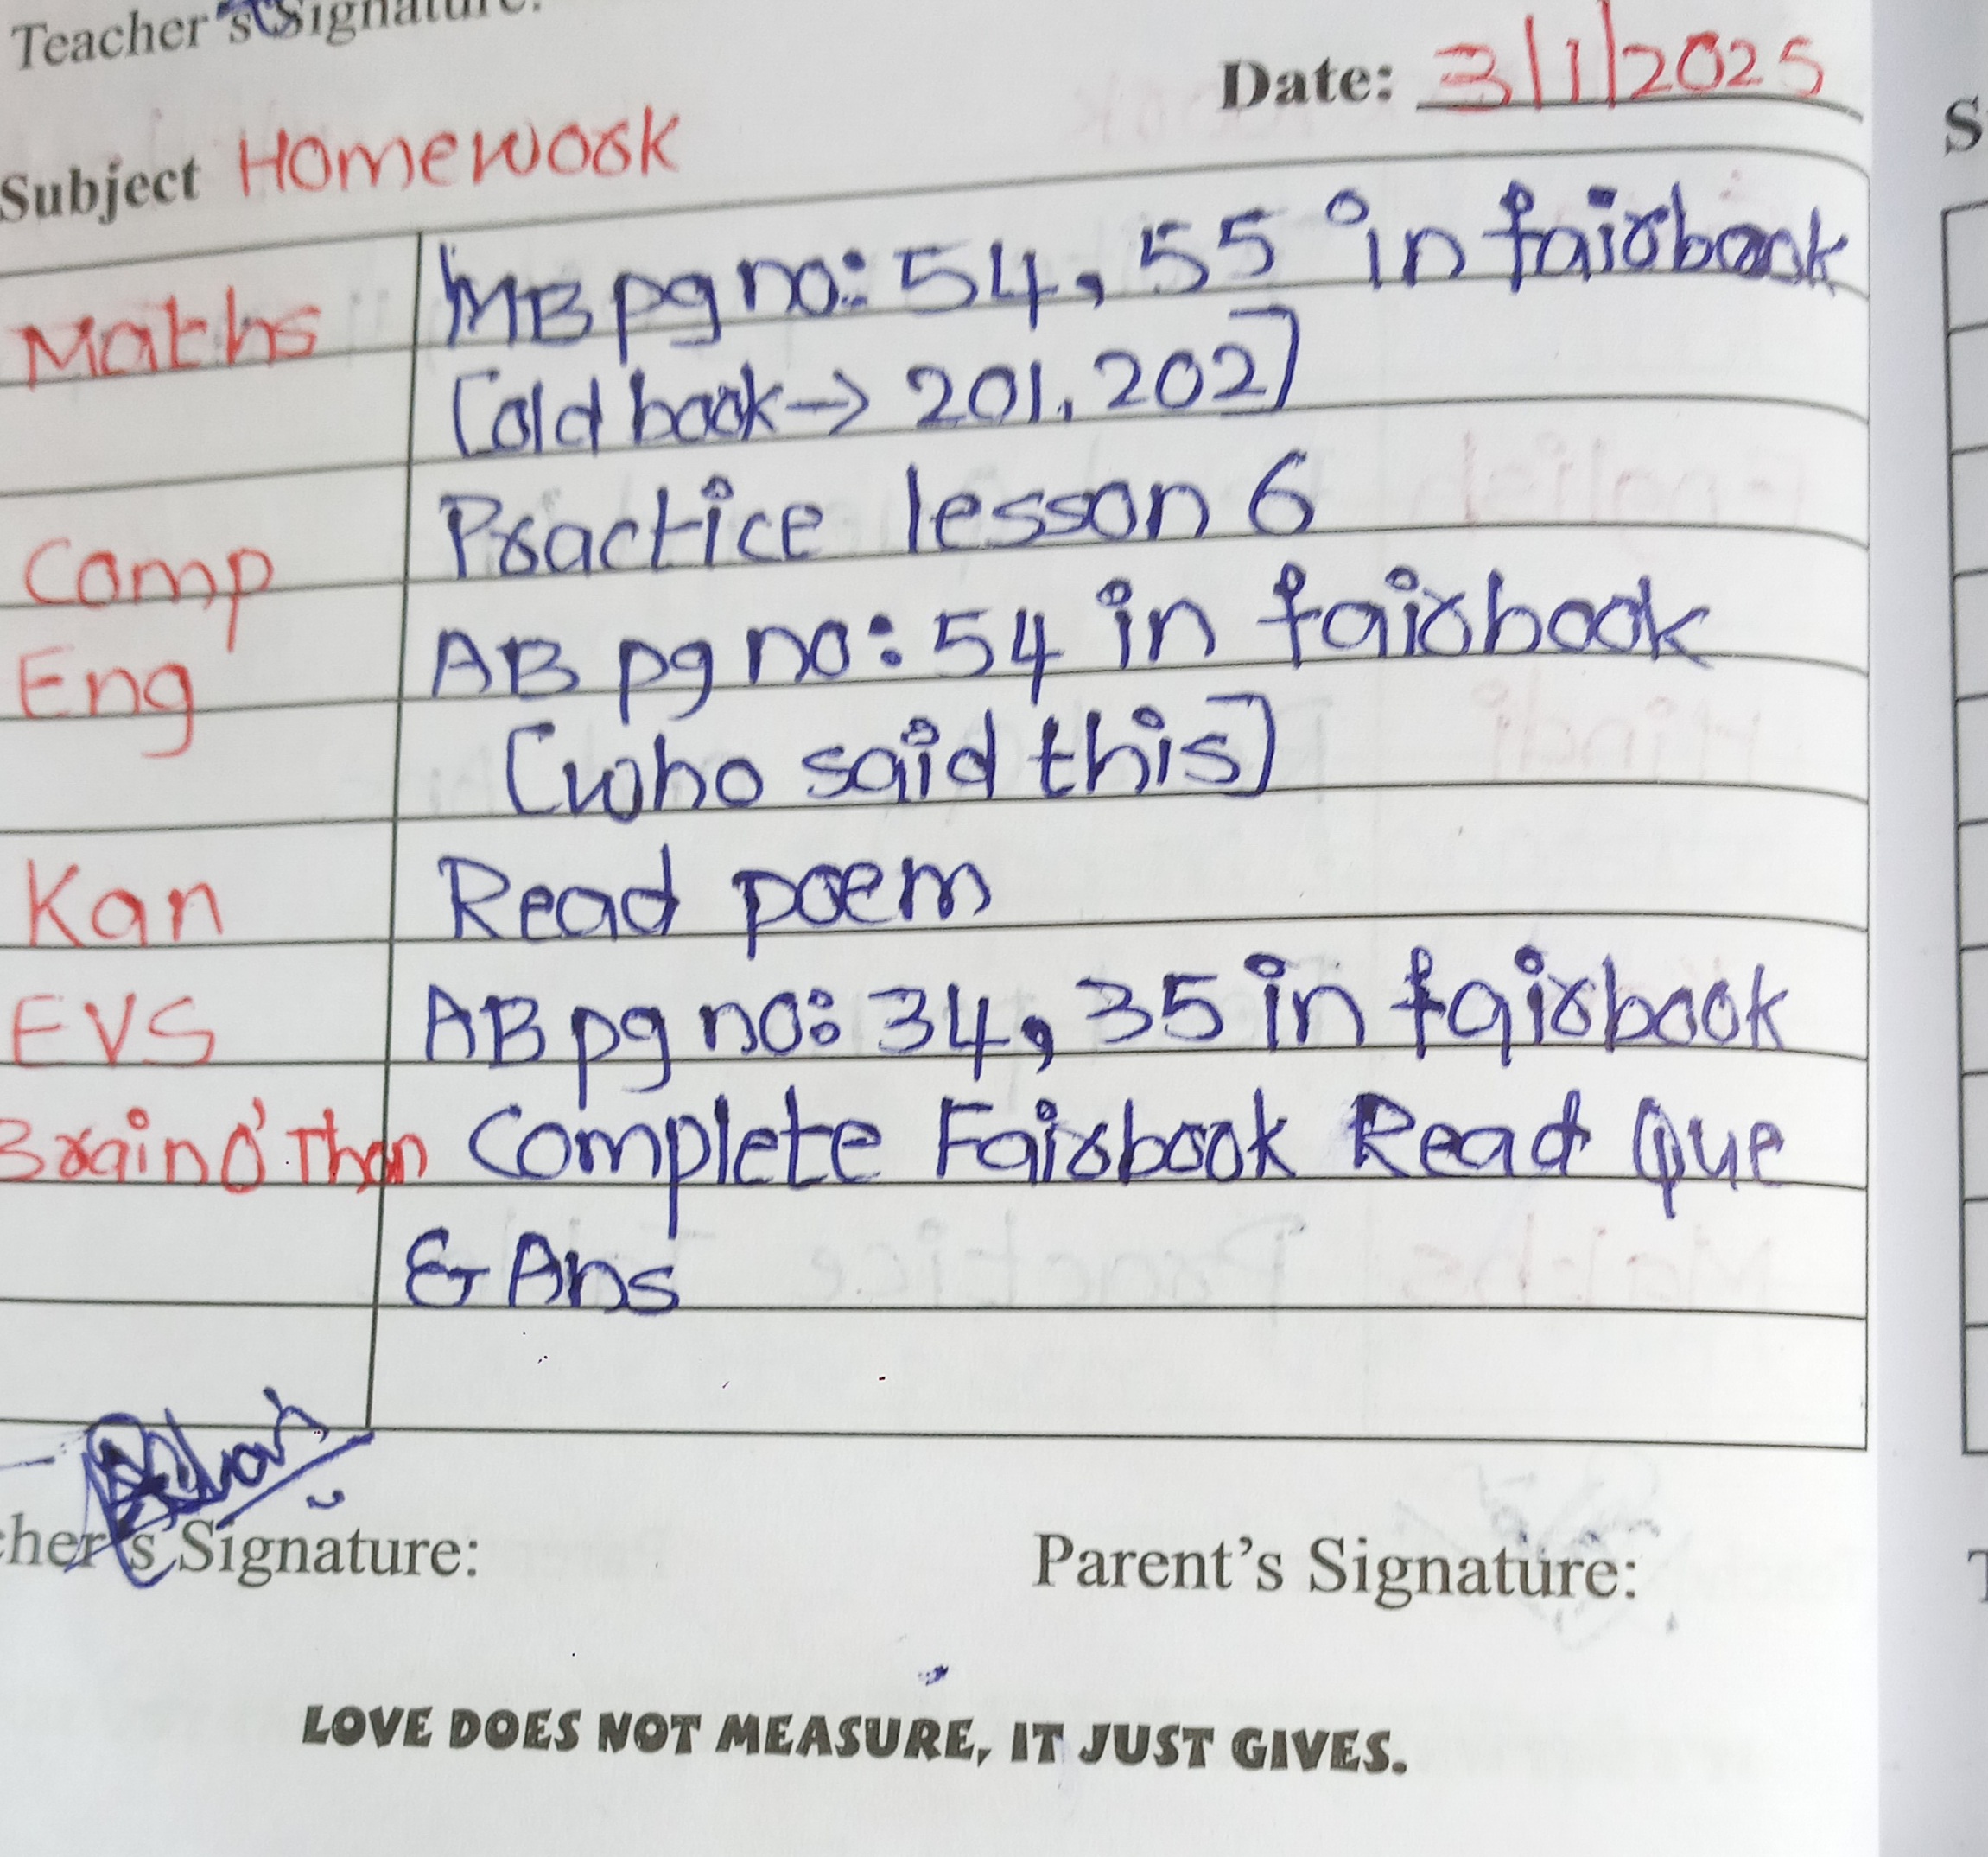 Teacher's Signature:
Date: 3/1/2025
Subject Homework
Maths MB pg no: 54, 55 in fairbook
[old book → 201, 202]
Comp Practice lesson 6
Eng AB pg no: 54 in fairbook
[who said this]
Kan Read poem
EVS AB pg no: 34, 35 in fairbook
BrainO'Than Complete Fairbook Read Que
& Ans
cher's Signature:
Parent's Signature:
LOVE DOES NOT MEASURE, IT JUST GIVES.